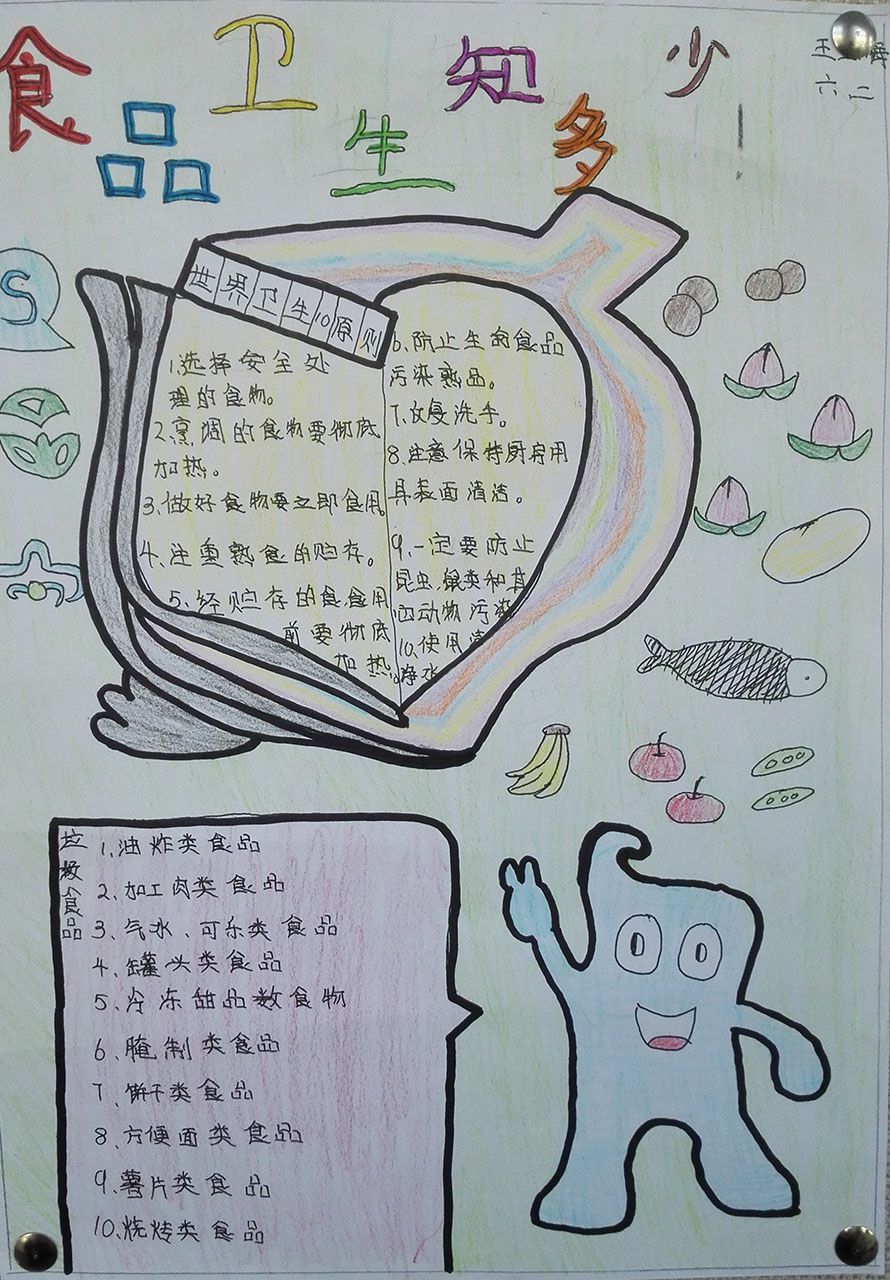 食品卫生知多少!
六二
S
世界卫生10原则
1.选择安全处
理的食物。
2.烹调的食物要彻底
加热。
3、做好食物要立即食用。
4、注重熟食的贮存。
5、经贮存的食食用
前要彻底
加热。
6、防止生的食品
污染熟品。
7、反复洗手。
8、注意保持厨房用
具表面清洁。
9、一定要防止
昆虫、鼠类和其
动物污染
10、使用清
净水
垃圾食品
1、油炸类食品
2、加工肉类食品
3、气水、可乐类食品
4、罐头类食品
5、冷冻甜品数食物
6、腌制类食品
7、饼干类食品
8、方便面类食品
9、薯片类食品
10、烧烤类食品